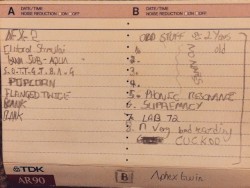 A DATE/TIME
NOISE REDUCTION ON OFF
B DATE/TIME
NOISE REDUCTION ON OFF
AFX-2
Clitoral Stimuli
SUB-AQUA
S.O.T.E.J.A.G
POPCORN
FLANGED THICE
BLANK
BLANK
ODD STUFF 2 Years
old
NO NAMES
1.
2.
3.
4.
5. MONIC RESONANCE
6. SUPREMACY
7. LAB 72
8. A Very bad recording
CUCKOO
TDK
AR90
B
Aphex Twin